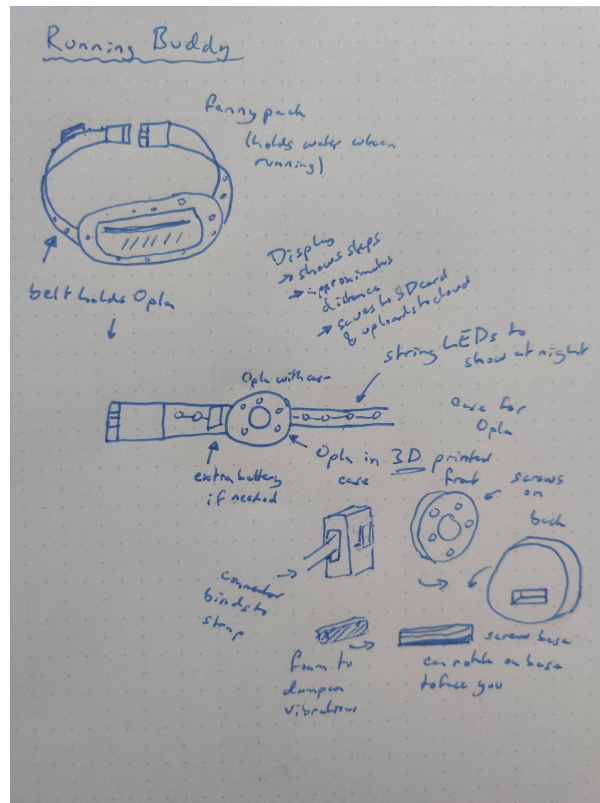 Running Buddy
fanny pack
(holds water when
running)
belt holds Opla
Display
→ shows steps
→ approximates
distance
→ saves to SD card
& uploads to cloud
string LEDs to
show at night
Opla with case
case for
Opla
extra battery
if needed
Opla in 3D printed
case
front
screws
on
back
connector
binds to
strap
foam to
dampen
vibrations
screw base
can rotate on base
to face you